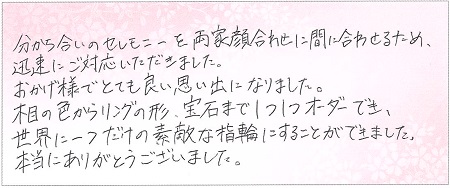 分かち合いのセレモニーを両家顔合わせに間に合わせるため、
迅速にご対応いただきました。
おかげ様でとても良い思い出になりました。
木目の色からリングの形、宝石まで1つ1つオーダーでき、
世界に一つだけの素敵な指輪にすることができました。
本当にありがとうございました。